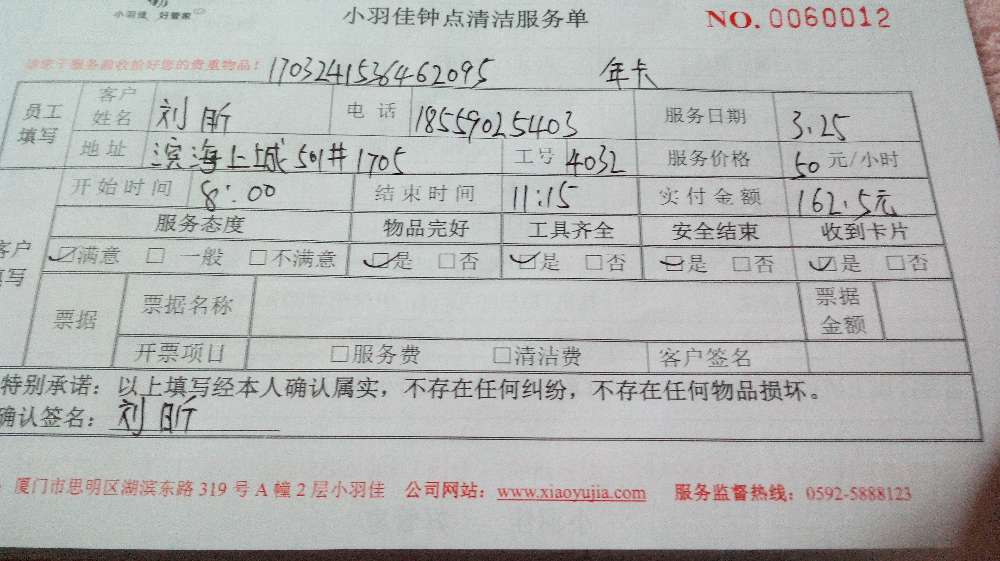 小羽佳 好管家
小羽佳钟点清洁服务单
NO. 0060012
请您于服务前收拾好您的贵重物品！ 1703241536462095 年卡
员工填写 客户姓名 刘昕 电话 18559025403 服务日期 3.25
地址 滨海上城501#1705 工号 4032 服务价格 50 元/小时
开始时间 8:00 结束时间 11:15 实付金额 162.5元
客户填写 服务态度 物品完好 工具齐全 安全结束 收到卡片
☑满意 □一般 □不满意 ☑是 □否 ☑是 □否 ☑是 □否 ☑是 □否
票据 票据名称 票据金额
开票项目 □服务费 □清洁费 客户签名
特别承诺：以上填写经本人确认属实，不存在任何纠纷，不存在任何物品损坏。
确认签名：刘昕
厦门市思明区湖滨东路 319 号 A 幢 2 层小羽佳 公司网站：www.xiaoyujia.com 服务监督热线：0592-5888123